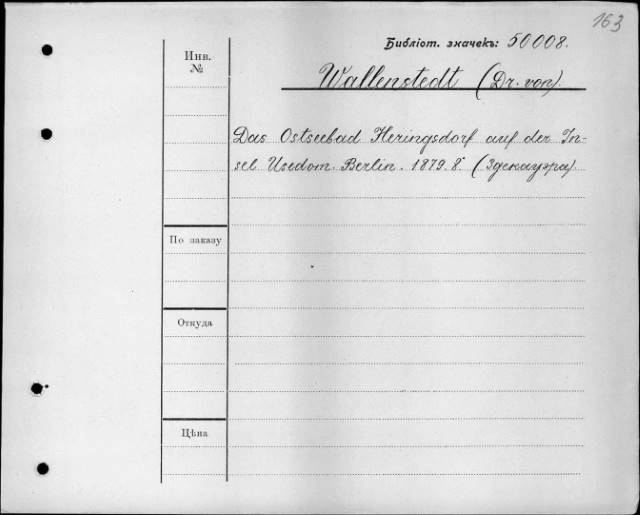 163
Библіот. значекъ: 50008.
Инв.
№
Wallenstedt (Dr. von).
Das Ostseebad Heringsdorf auf der In-
sel Usedom. Berlin. 1879. 8° (Здекауэра).
По заказу
Откуда
Цѣна